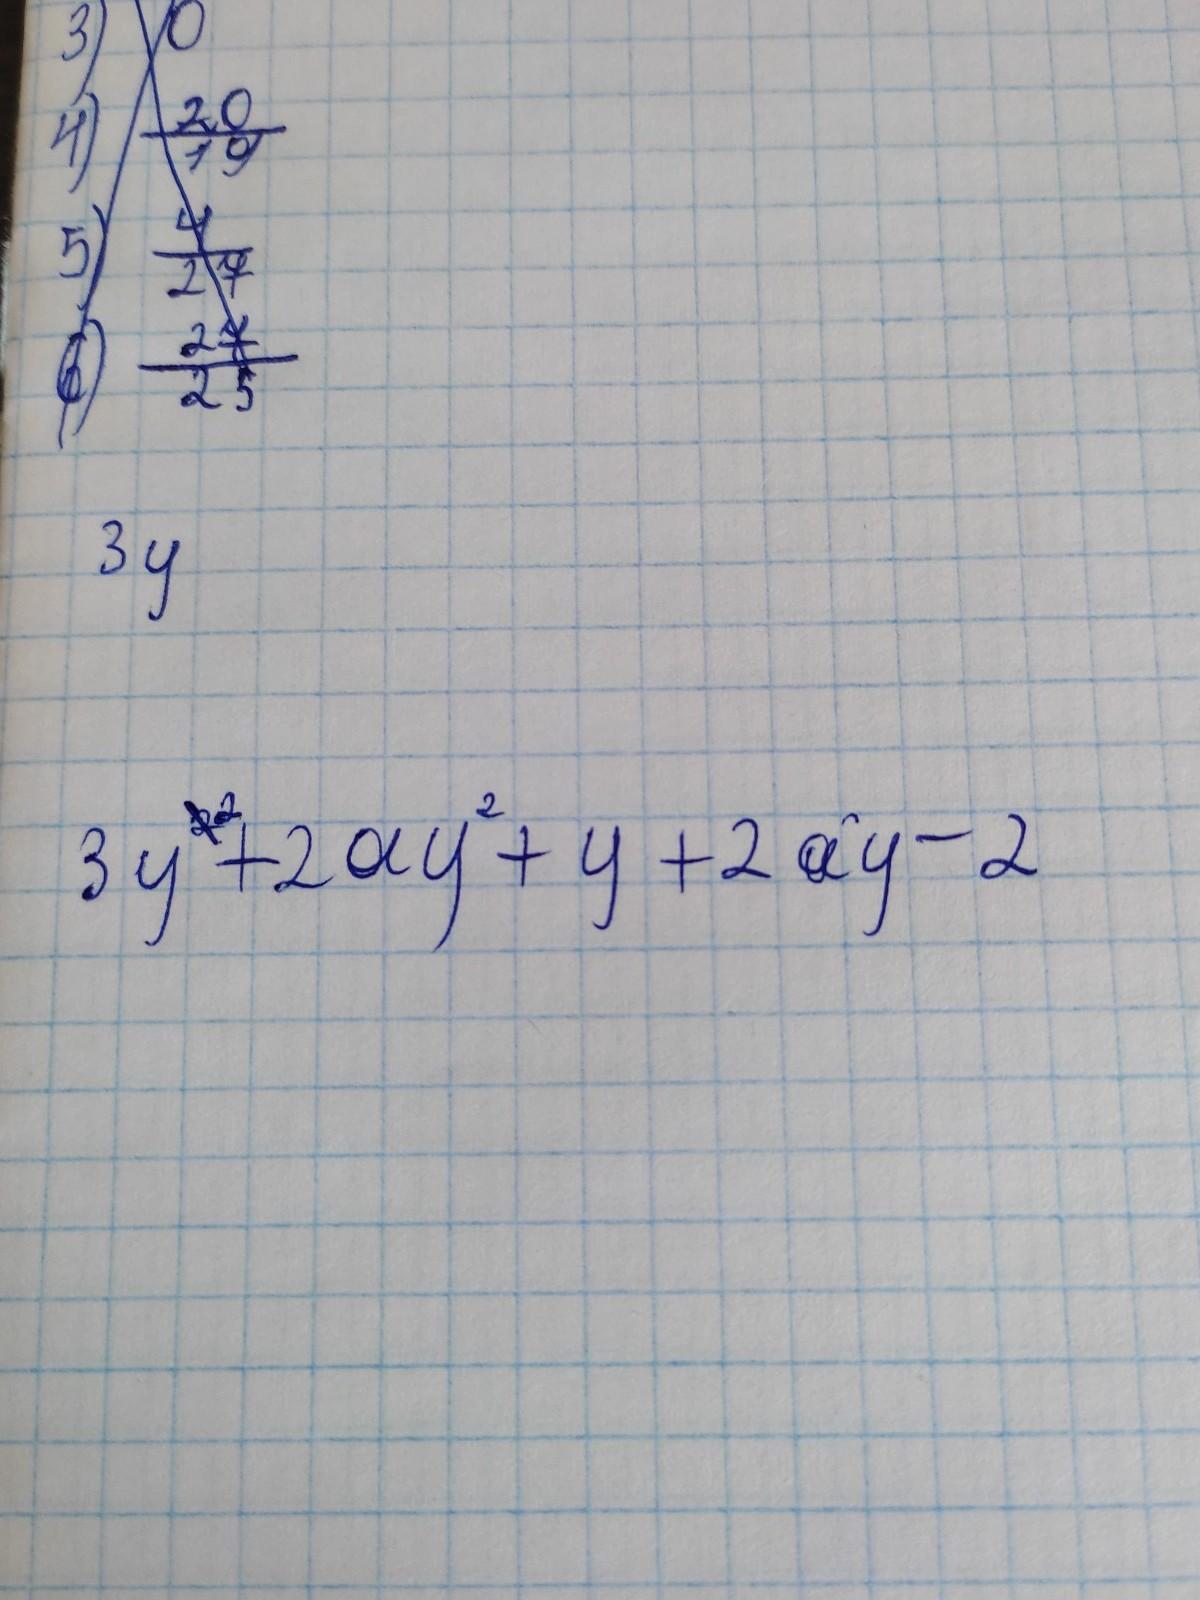 3) 0
4) 20/19
5) 4/27
6) 27/25
3y
3y²+2ay²+y+2ay-2